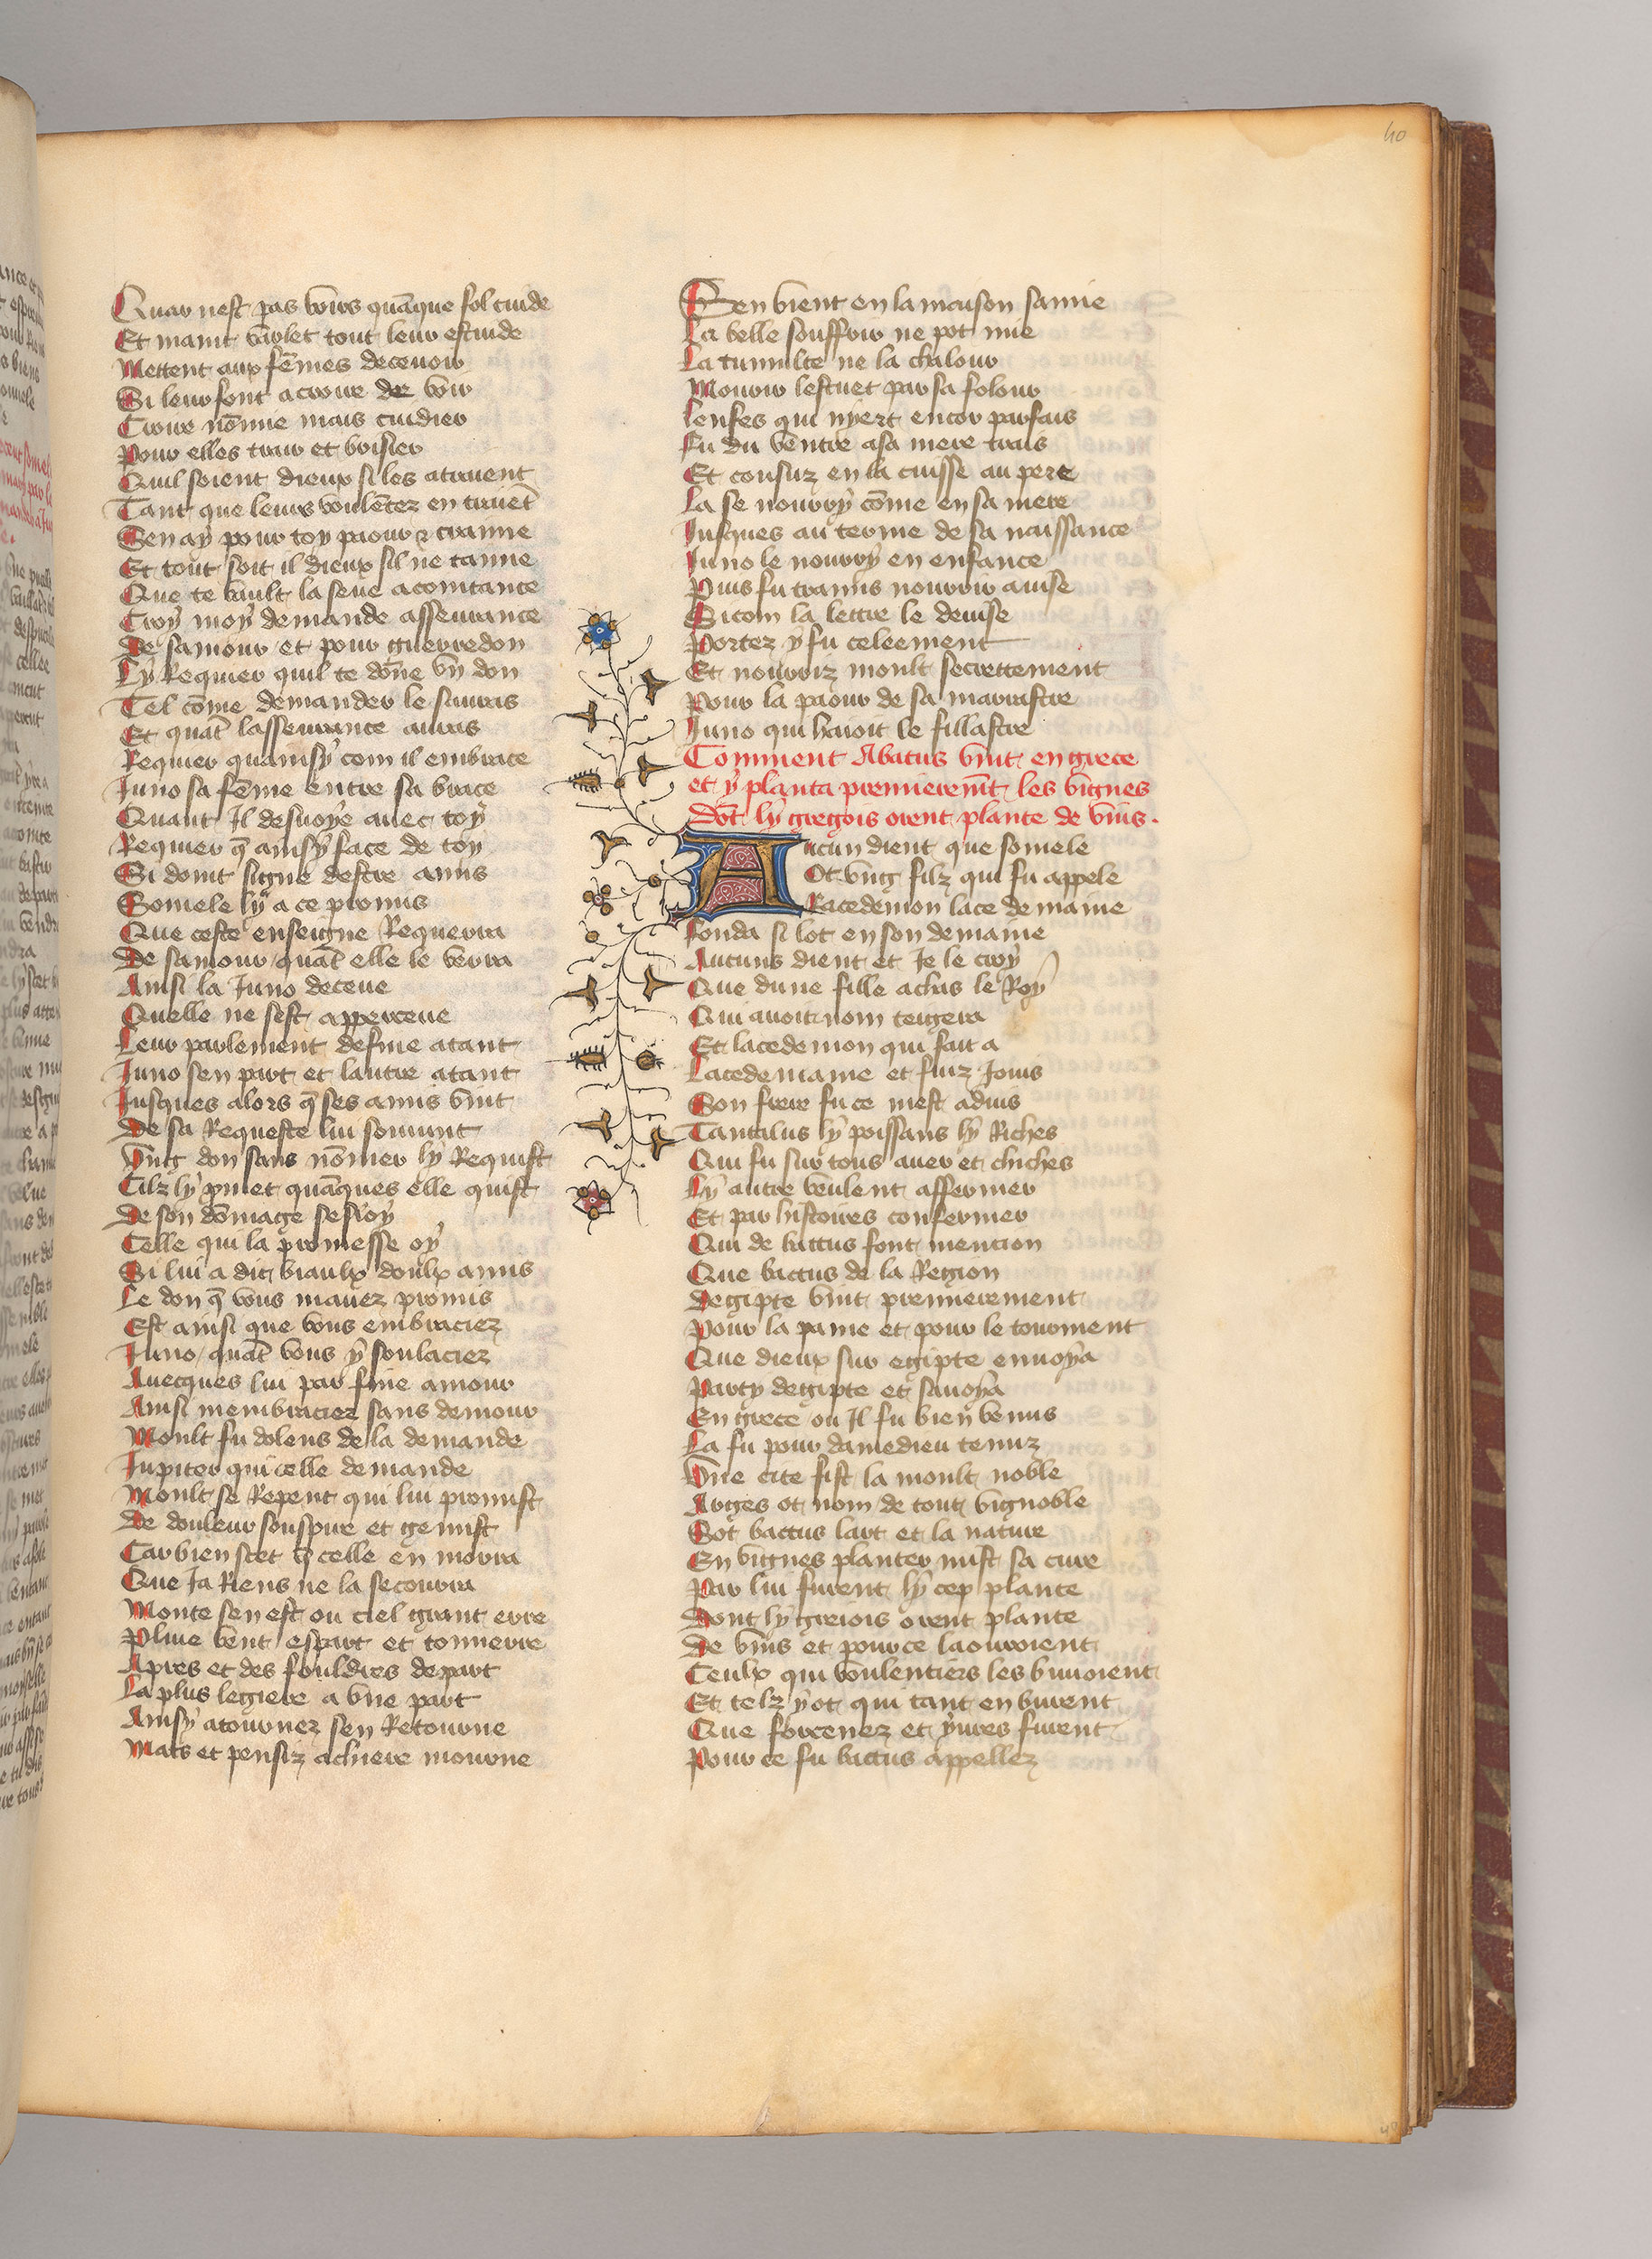 40
Quar nest pas voirs quãque fol cuide
Et maint varlet tout leur estuide
Mettent aux fẽmes decevoir
Si leur font acroire de voir
Croire nõmie mais cuidier
Pour elles trair et boisier
Quil soient dieux si les atraient
Tant que leurs voulẽtez en traiẽt
Sen ay pour toy paour & crainie
Et tout soit il dieux sil ne taime
Que te vault la seue acointance
Croy moy demande asseurance
De samour et pour guerredon
Ly Requier quil te dõne vn don
Tel cõme demander le sauras
Et quãt lasseurance auras
Requier quainsy com il embrace
Iuno sa fẽme entre sa brace
Quant Il desuoye auec toy
Requier q̃ ainsy face de toy
Si doint signe destre amis
Somele ly a ce promis
Que ceste enseigne Requerra
De samour quãt elle le verra
Ainsi la Iuno deceue
Quelle ne sest apperceue
Leur parlement define atant
Iuno sen part et lautre atant
Iusques alors q̃ ses amis vint
De sa Requeste lui souuint
Vng don sans nõmer ly Requist
Cilz ly pmet quãques elle quist
De son dõmage sesioy
Celle qui la promesse oy
Si lui a dit biaulx doulx amis
Le don q̃ vous mauez promis
Est ainsi que vous embraciez
Iuno quãt vous y soulaciez
Auecques lui par fine amour
Ainsi membraciez sans demour
Moult fu dolens de la demande
Iupiter qui celle demande
Moult se Repent qui lui promist
De douleur souspire et gemist
Car bien scet q̃ celle en morra
Que Ja Riens ne la secourra
Monte sen est ou ciel grant erre
Pluie vent espart et tonnerre
Apres et des fouldres depart
La plus legiere a vne part
Ainsy atournez sen Retourne
Mats et pensiz a chiere mourne
Sen vient en la maison samie
La belle souffrir ne pot mie
La tumulte ne la chalour
Mourir lestuet par sa folour
Lenfes qui nyert encor parfais
Fu du ventre a sa mere trais
Et cousuz en la cuisse au pere
La se nourry cõme en sa mere
Iusques au terme de sa naissance
Iuno le nourry en enfance
Puis fu tramis nourrir a nise
Si com la lettre le deuise
Portez y fu celeement
Et nourriz moult secrettement
Pour la paour de sa marrastre
Iuno qui haioit le fillastre
Comment Abacus vint en grece
et y planta premieremt les vignes
dõt ly gregois orent plante de vins.
Aucun dient que somele
Ot vng filz qui fu appele
Lacedemon lacedemaine
Fonda si lot en son demaine
Aucuns dient et Je le croy
Que dune fille achis le Roy
Qui auoit nom teigera
Et lacedemon qui fait a
Lacedemaine et fuiz Jouis
Son frere fu ce mest aduis
Tantalus ly poissans ly Riches
Qui fu sur tous auer et chiches
Ly autre veulent affermer
Et par histoires confermer
Qui de baccus font mencion
Que baccus de la Region
Degipte vint premierement
Pour la paine et pour le tourment
Que dieux sur egipte enuoya
Party degipte et sauoya
En grece ou Il fu bien venus
La fu pour damedieu tenuz
Vne cite fist la moult noble
Arges ot nom de tout vignoble
Sot baccus lart et la nature
En vignes planter mist sa cure
Par lui furent ly cep plante
Dont ly greiois orent plante
De vins et pource laouroient
Ceulx qui voulentiers les buuoient
Et telz y ot qui tant en burent
Que forcenez et yures furent
Pour ce fu baccus appellez